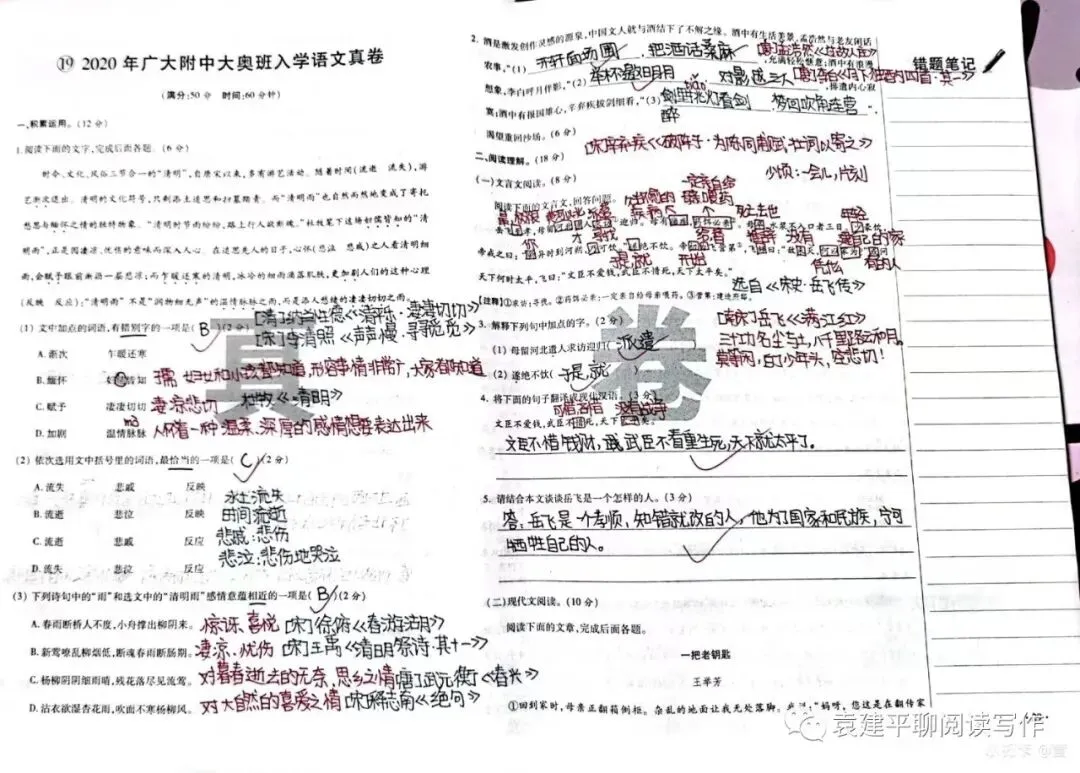 ⑲ 2020年广大附中大奥班入学语文真卷
(满分:50分 时间:60分钟)
一、积累运用。(12分)
1.阅读下面的文字,完成后面各题。(6分)
时令、文化、风俗三节合一的“清明”,自唐宋以来,多有游艺活动。随着时间(流逝 流失),游
艺渐次退出,清明的文化符号,只剩添土追思和扫墓踏青。而“清明雨”也自然而然地变成了寄托
哀思与缅怀之情的独特物象。“清明时节雨纷纷,路上行人欲断魂。”杜牧笔下这场妇孺皆知的“清
明雨”,正是因凄凉、忧伤的意味而深入人心。在追思先人的日子,心怀(悲泣 悲戚)之人看清明细
雨,会赋予眼前断渐一层悲凉;而乍暖还寒的清明,冰冷的细雨滴落肌肤,更加剧人们的这种心理
(反映 反应);“清明雨”不是“润物细无声”的温情脉脉之雨,而是添人愁绪的凄凄切切之雨。
(1) 文中加点的词语,有错别字的一项是( B )(2分)
[清]纳兰性德《清平乐·凄凄切切》
[宋]李清照《声声慢·寻寻觅觅》
A. 渐次 乍暖还寒
B. 缅怀 妇孺皆知
孺 妇女和小孩都知道,形容事情非常广,大家都知道
C. 赋予 凄凄切切 凄凉悲切 杜牧《清明》
D. 加剧 温情脉脉 mò 人怀着一种温柔、深厚的感情想要表达出来
(2) 依次选用文中括号里的词语,最恰当的一项是( C )(2分)
A. 流失 悲戚 反映 水土流失
B. 流逝 悲泣 反映 时间流逝
C. 流逝 悲戚 反应 悲戚:悲伤
D. 流失 悲泣 反应 悲泣:悲伤地哭泣
(3) 下列诗句中的“雨”和选文中的“清明雨”感情意蕴相近的一项是( B )(2分)
A. 春雨断桥人不度,小舟撑出柳阴来。 惊讶、喜悦 [宋]徐俯《春游湖》
B. 新莺嘹乱柳烟低,断魂春雨断肠期。 凄凉、忧伤 [宋]王禹《清明 诗·其十一》
C. 杨柳阴阴细雨晴,残花落尽见流莺。 对暮春逝去的无奈,思乡之情[唐]武元衡《春兴》
D. 沾衣欲湿杏花雨,吹面不寒杨柳风。 对大自然的喜爱之情 [宋]释志南《绝句》
2. 酒是激发创作灵感的源泉,中国文人就与酒结下了不解之缘。酒中有生活美景,孟浩然与老友闲话
农事,“(1) 开轩面场圃 , 把酒话桑麻 [唐]孟浩然《过故人庄》 ”,充满轻松惬意;酒中有浪漫
想象,李白呼月伴影,“(2) 举杯邀明月 , 对影成三人 [唐]李白《月下独酌四首·其一》 ”,排遣内心寂
寞;酒中有报国雄心,辛弃疾拔剑细看,“(3) 醉里挑灯看剑 tiǎo , 梦回吹角连营 ”,
渴望重回沙场。(6分) 醉
[宋]辛弃疾《破阵子·为陈同甫赋壮词以寄之》
二、阅读理解。(18分)
(一)文言文阅读。(8分) 一定亲自给 少顷:一会儿,片刻
阅读下面的文言文,回答问题。
天下何时太平,飞曰:“文臣不爱钱,武臣不惜死,天下太平矣。”
选自《宋史·岳飞传》
【注释】①求访:寻找。②药饵必亲:一定亲自给母亲喂药。③营第:建造府邸。
3. 解释下列句中加点的字。(2分)
[南宋]岳飞《满江红》
三十功名尘与土,八千里路云和月。
莫等闲,白了少年头,空悲切!
(1) 母留河北遣人求访迎归( 派遣 )
(2) 遂绝不饮( 于是,就 )
4. 将下面的句子翻译成现代汉语。(3分)
文臣不爱钱,武臣不惜死,天下太平矣。
文臣不惜钱财,武臣不看重生死,天下就太平了。
5. 请结合本文谈谈岳飞是一个怎样的人。(3分)
答:岳飞是一个孝顺,知错就改的人,他为了国家和民族,宁可
牺牲自己的人。
(二)现代文阅读。(10分)
阅读下面的文章,完成后面各题。
一把老钥匙
王举芳
①回到家时,母亲正翻箱倒柜。杂乱的地面让我无处落脚。 “妈呀,您这是在翻传家
错题笔记
袁建平聊阅读写作